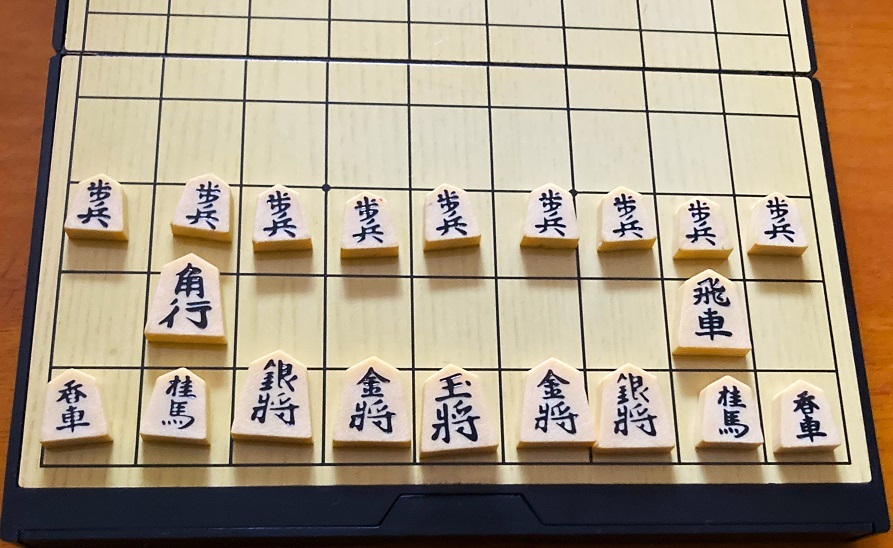 歩兵 歩兵 歩兵 歩兵 歩兵 歩兵 歩兵 歩兵 歩兵
角行 飛車
香車 桂馬 銀將 金將 玉將 金將 銀將 桂馬 香車